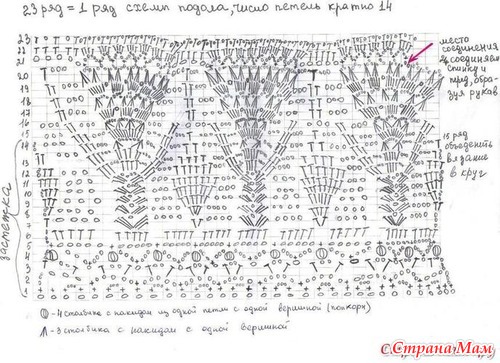 23 ряд = 1 ряд схемы подола, число петель кратно 14
место
соединения
15 ряд
объеденить
вязание
в круг
застежка
23
22
21
20
19
18
17
16
15
14
13
12
11
10
9
8
7
6
5
4
3
2
1
- 4 столбика с накидом из одной петли с одной вершиной (попкорн)
- 3 столбика с накидом с одной вершиной
с.Страна Мам